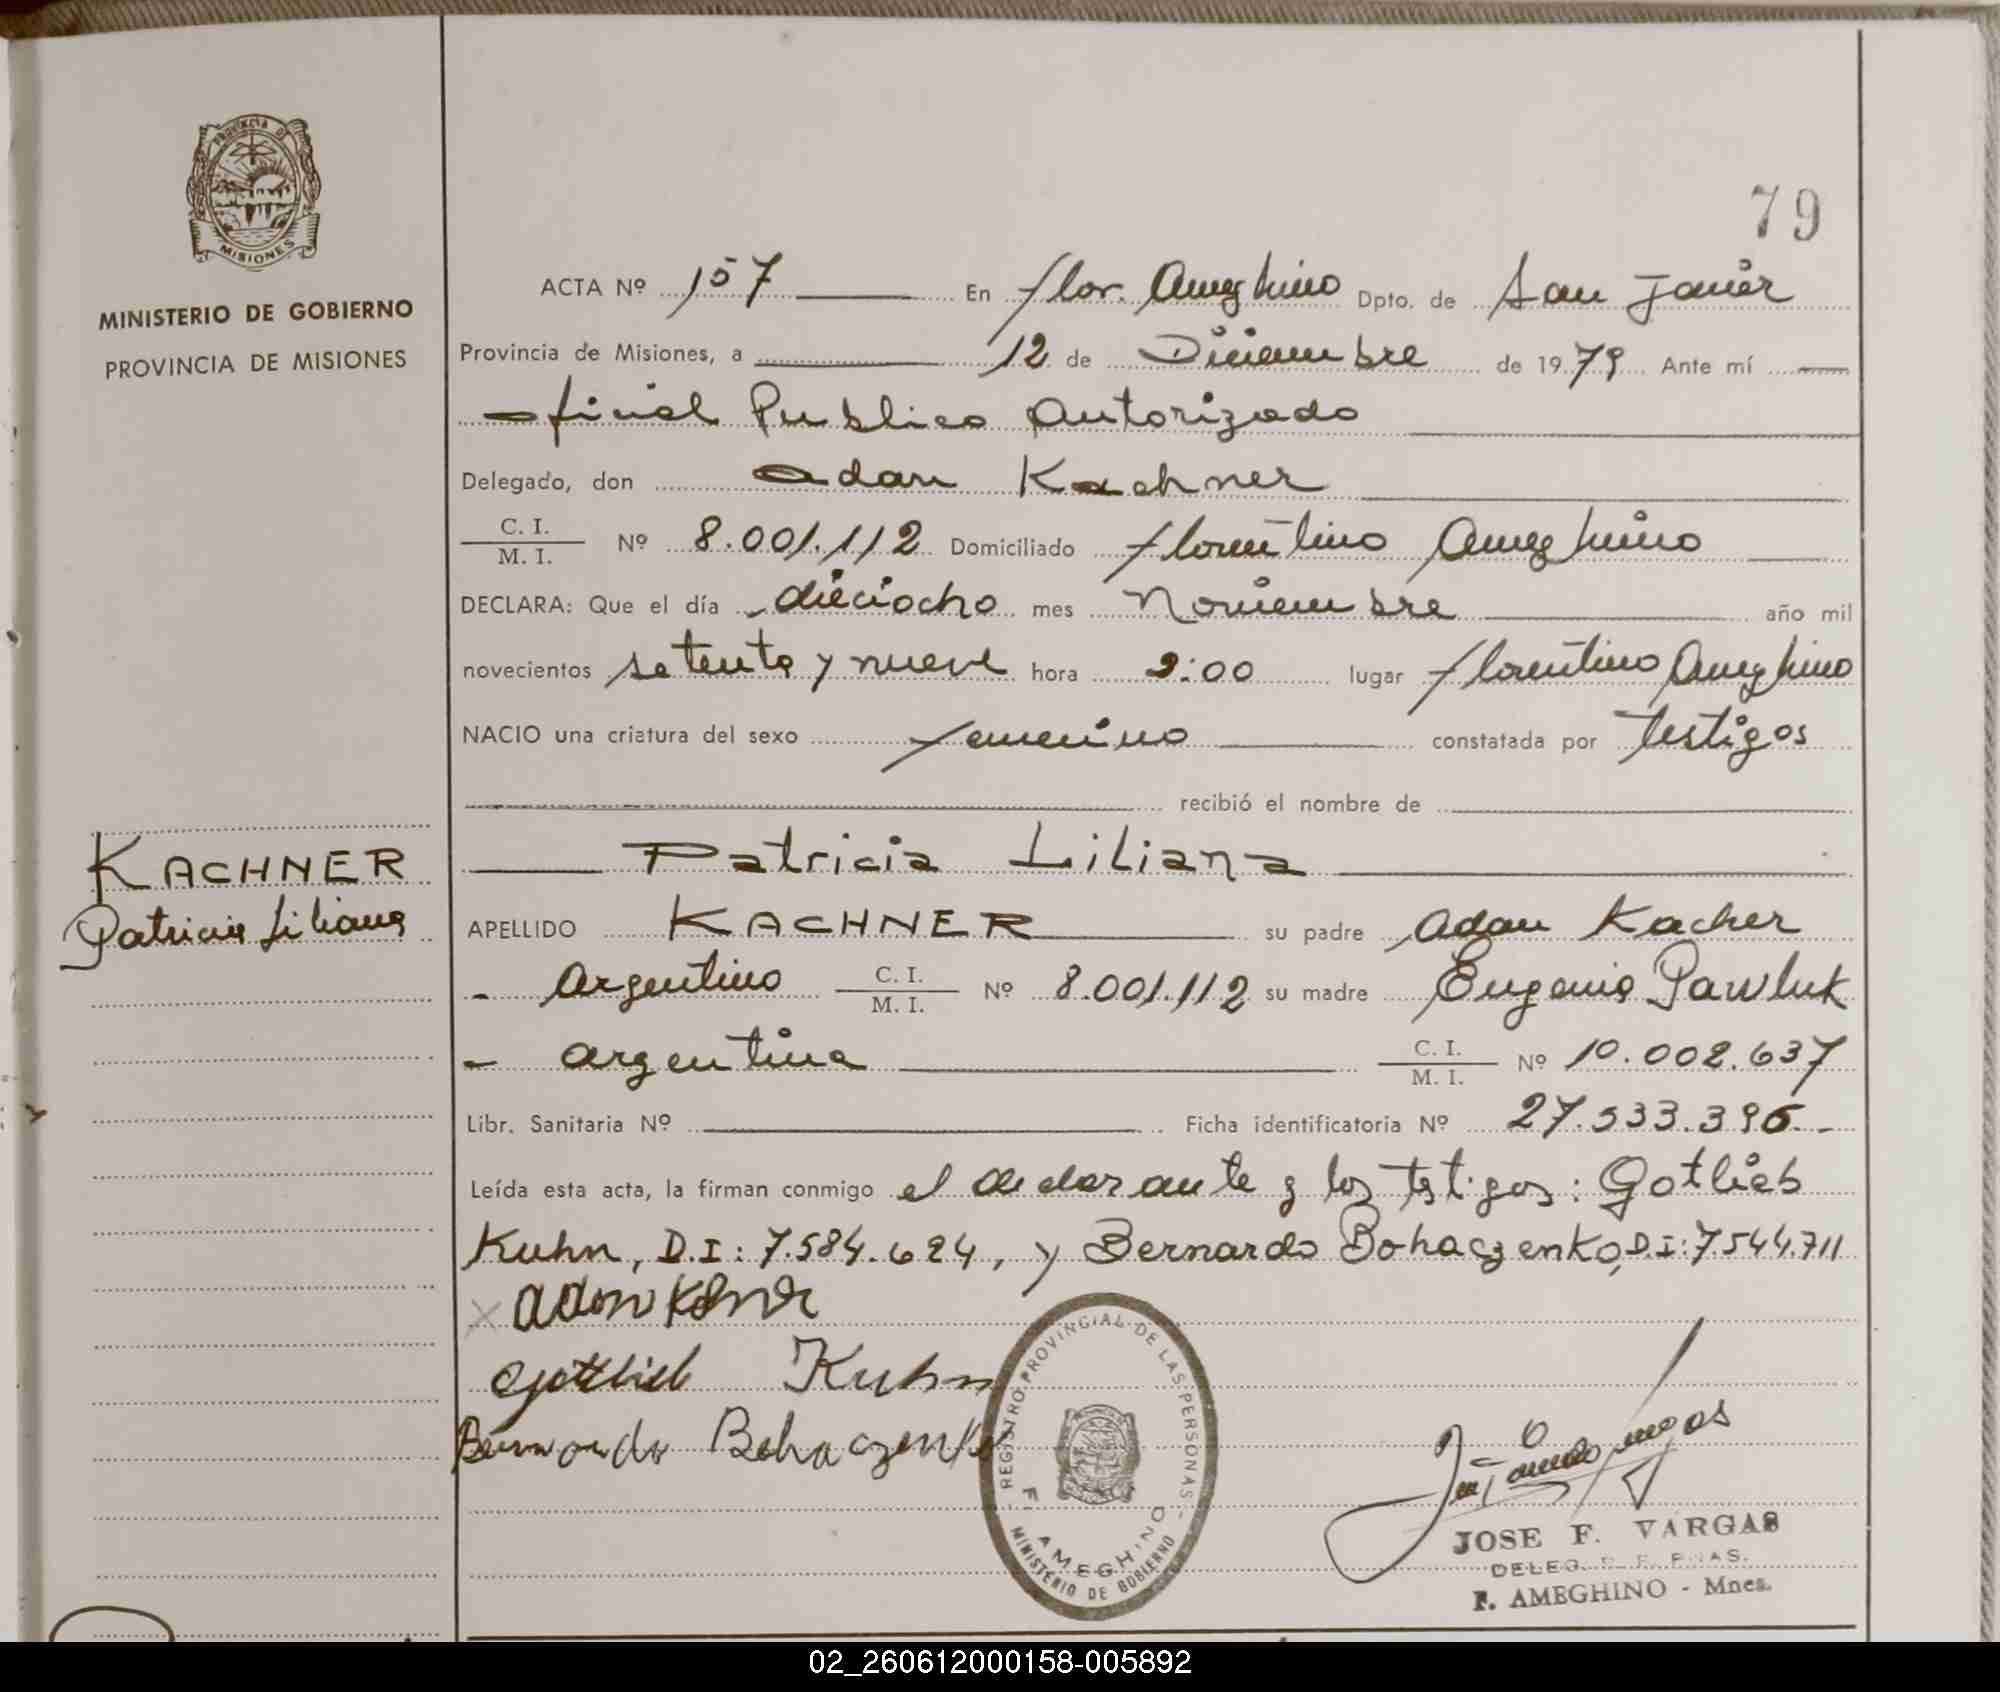 79
PROVINCIA DE
MISIONES
MINISTERIO DE GOBIERNO
PROVINCIA DE MISIONES
ACTA Nº 157 En Flor. Ameghino Dpto. de San Javier
Provincia de Misiones, a 12 de Diciembre de 1979 Ante mí
oficial Publico Autorizado
Delegado, don Adan Kachner
C. I. / M. I. Nº 8.001.112 Domiciliado Florentino Ameghino
DECLARA: Que el día dieciocho mes Noviembre año mil
novecientos setenta y nueve hora 2:00 lugar Florentino Ameghino
NACIO una criatura del sexo femenino constatada por testigos
recibió el nombre de
KACHNER
Patricia Liliana
Patricia Liliana
APELLIDO KACHNER su padre Adan Kacher
- Argentino C. I. / M. I. Nº 8.001.112 su madre Eugenia Pawluk
- argentina C. I. / M. I. Nº 10.002.637
Libr. Sanitaria Nº Ficha identificatoria Nº 27.533.396.-
Leída esta acta, la firman conmigo el declarante y los testigos: Gotlieb
Kuhn, D.I: 7.584.624, y Bernardo Bohaczenko, D.I: 7.544.711
Adan
Gottlieb Kuhn
Bernardo Bohaczenko
REGISTRO PROVINCIAL DE LAS PERSONAS
F. AMEGHINO
MINISTERIO DE GOBIERNO
JOSE F. VARGAS
DELEG.
F. AMEGHINO - Mnes.
02_260612000158-005892